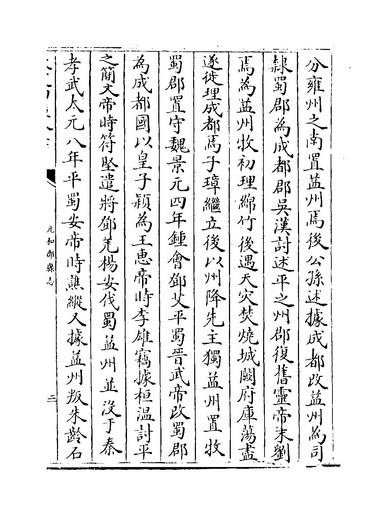 分雍州之南置益州焉後公孫述據成都改益州為司
隸蜀郡為成都郡吳漢討述平之州郡復舊靈帝末劉
焉為益州牧初理綿竹後遇天火焚燒城闕府庫蕩盡
遂徙理成都焉子璋繼立後以州降先主獨益州置牧
蜀郡置守魏景元四年鍾會鄧艾平蜀晉武帝改蜀郡
為成都國以皇子潁為王惠帝時李雄竊據桓溫討平
之簡文帝時符堅遣將鄧羌楊安伐蜀益州並没于秦
孝武太元八年平蜀安帝時譙縱又據益州叛朱齡石
元和郡縣志
二